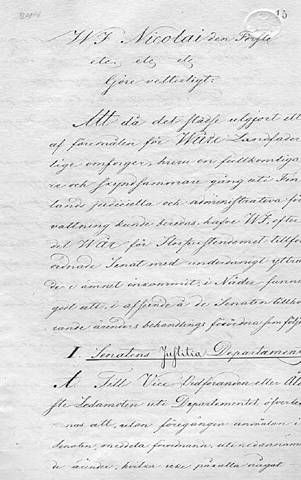 15
Wi Nicolai den Förste
etc. etc. etc.
Göre vetterligt:
Att då det städse utgjort ett
af föremålen för Wåre Landsfader
lige omsorger, huru en fullkomliga
re och skyndsammare gång uti Fin
lands judiciella och administrativa för
valtning kunde beredas, hafve Wi, efter
det Wår för Storfurstendömet tillför
ordnade Senat med underdånigt yttran
de i ämnet inkommit, i Nåder funnit
godt att, i afseende å de Senaten tillhö
rande ärenders behandling förordna som följer
I. Senatens Justitiæ Departement
A. Till Vice Ordföranden eller Äld
ste Ledamoten uti Departementet öfverlem
nas att, utan föregången anmälan i
Senaten, meddela förordnande uti nedannämn
de ärender, hvilka icke påkalla något